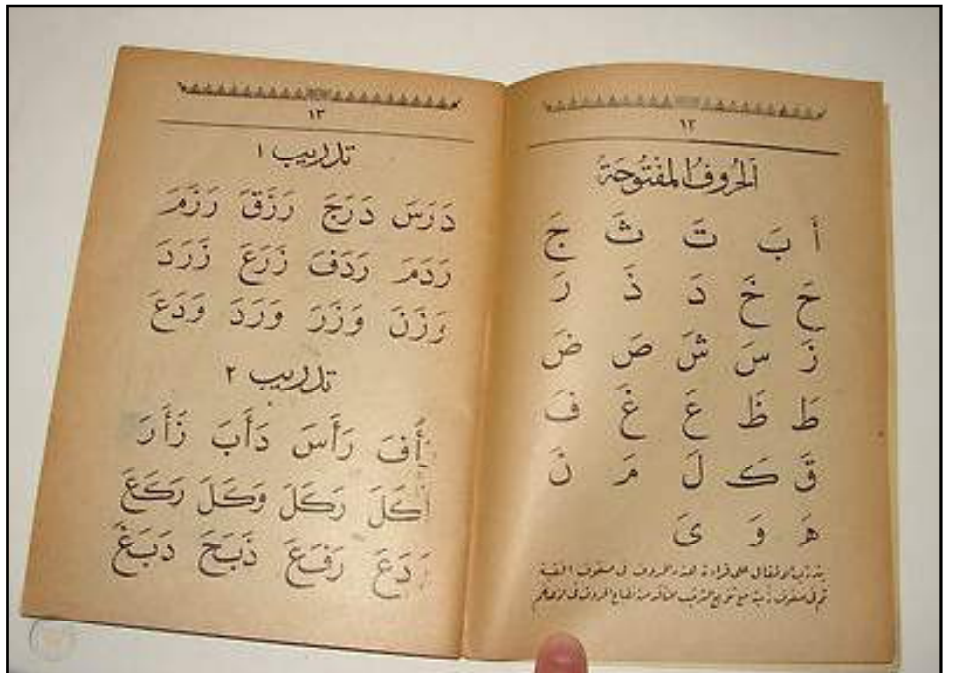 ١٢
اَلحُروفُ المَفْتُوحَةُ
أَ بَ تَ ثَ جَ
حَ خَ دَ ذَ رَ
زَ سَ شَ صَ ضَ
طَ ظَ عَ غَ فَ
قَ كَ لَ مَ نَ
هَ وَ ىَ
على قراءة هذه الحروف فى صفوف
مع
١٣
تدريب ١
دَرَسَ دَرَجَ رَزَقَ رَزَمَ
رَدَمَ رَدَفَ زَرَعَ زَرَدَ
وَزَنَ وَزَرَ وَرَدَ وَدَعَ
تدريب ٢
أَفَ رَأَسَ دَأَبَ زَأَرَ
أَكَلَ رَكَلَ وَكَلَ رَكَعَ
رَدَعَ رَفَعَ ذَبَحَ دَبَغَ